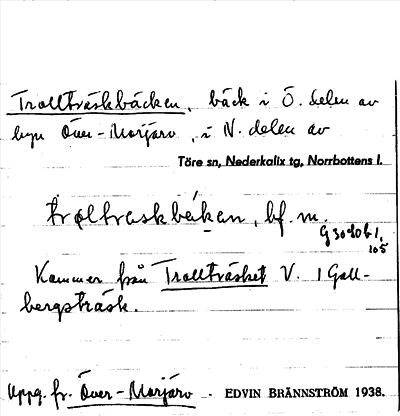 Trollträskbäcken, bäck i Ö. delen av
byn Över-Morjärv, i N. delen av
Töre sn, Nederkalix tg, Norrbottens l.
trøltraskbäkan, bf. m.
Kommer från Trollträsket V. I Gall-
bergsträsk.
Uppg. fr. Över-Morjärv. EDVIN BRÄNNSTRÖM 1938.